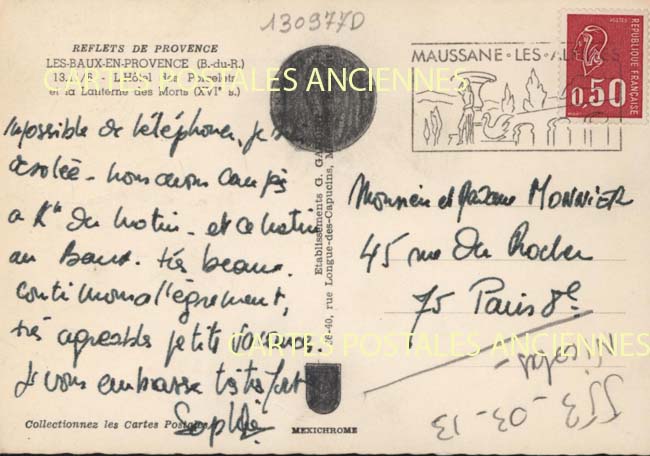 130977D
REFLETS DE PROVENCE
LES-BAUX-EN-PROVENCE (B.-du-R.)
L'Hôtel des Porcelets
et la Lanterne des Morts (XVIe s.)
CARTES POSTALES ANCIENNES
MAUSSANE-LES-ALPILLES
POSTES
RÉPUBLIQUE FRANÇAISE
0,50
Impossible de téléphoner, je suis
désolée - nous avons campés
a du matin. et ce matin
au Baux. très beau.
continuons allègrement,
très agréable petite
je vous embrasse très fort
Sophie
Etablissements G.
rue Longue-des-Capucins,
Monsieur et Madame MONNIER
45 rue du Rocher
75 Paris 8e
CARTES POSTALES ANCIENNES
553-03-13
Collectionnez les Cartes Postales
MEXICHROME